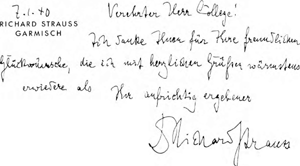 7.1.40
RICHARD STRAUSS
GARMISCH
Verehrter Herr College!
Ich danke Ihnen für Ihre freundlichen
Glückwünsche, die ich mit herzlichen Grüßen wärmstens
erwidere als Ihr aufrichtig ergebener
DrRichardStrauss